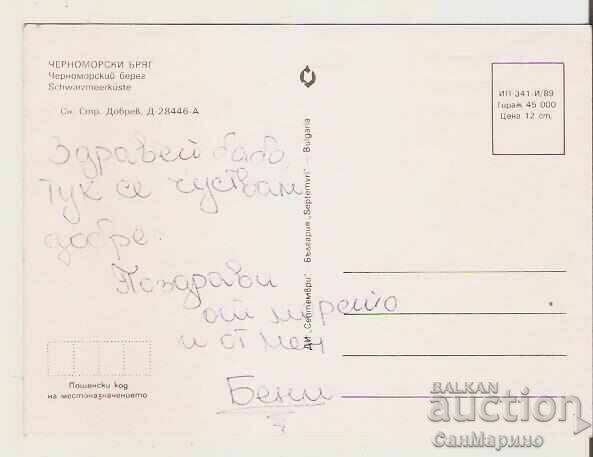 ЧЕРНОМОРСКИ БРЯГ
Черноморский берег
Schwarzmeerküste
Сн. Стр. Добрев, Д-28446-А
ИП 341-И/89
Тираж 45 000
Цена 12 ст.
Здравей бабо,
тук се чуствам
добре.
Поздрави
от морето
и от мен
Бени
ДИ „Септември" – България „Septemvri" – Bulgaria
Пощенски код
на местоназначението
BALKAN
auction
СанМарино